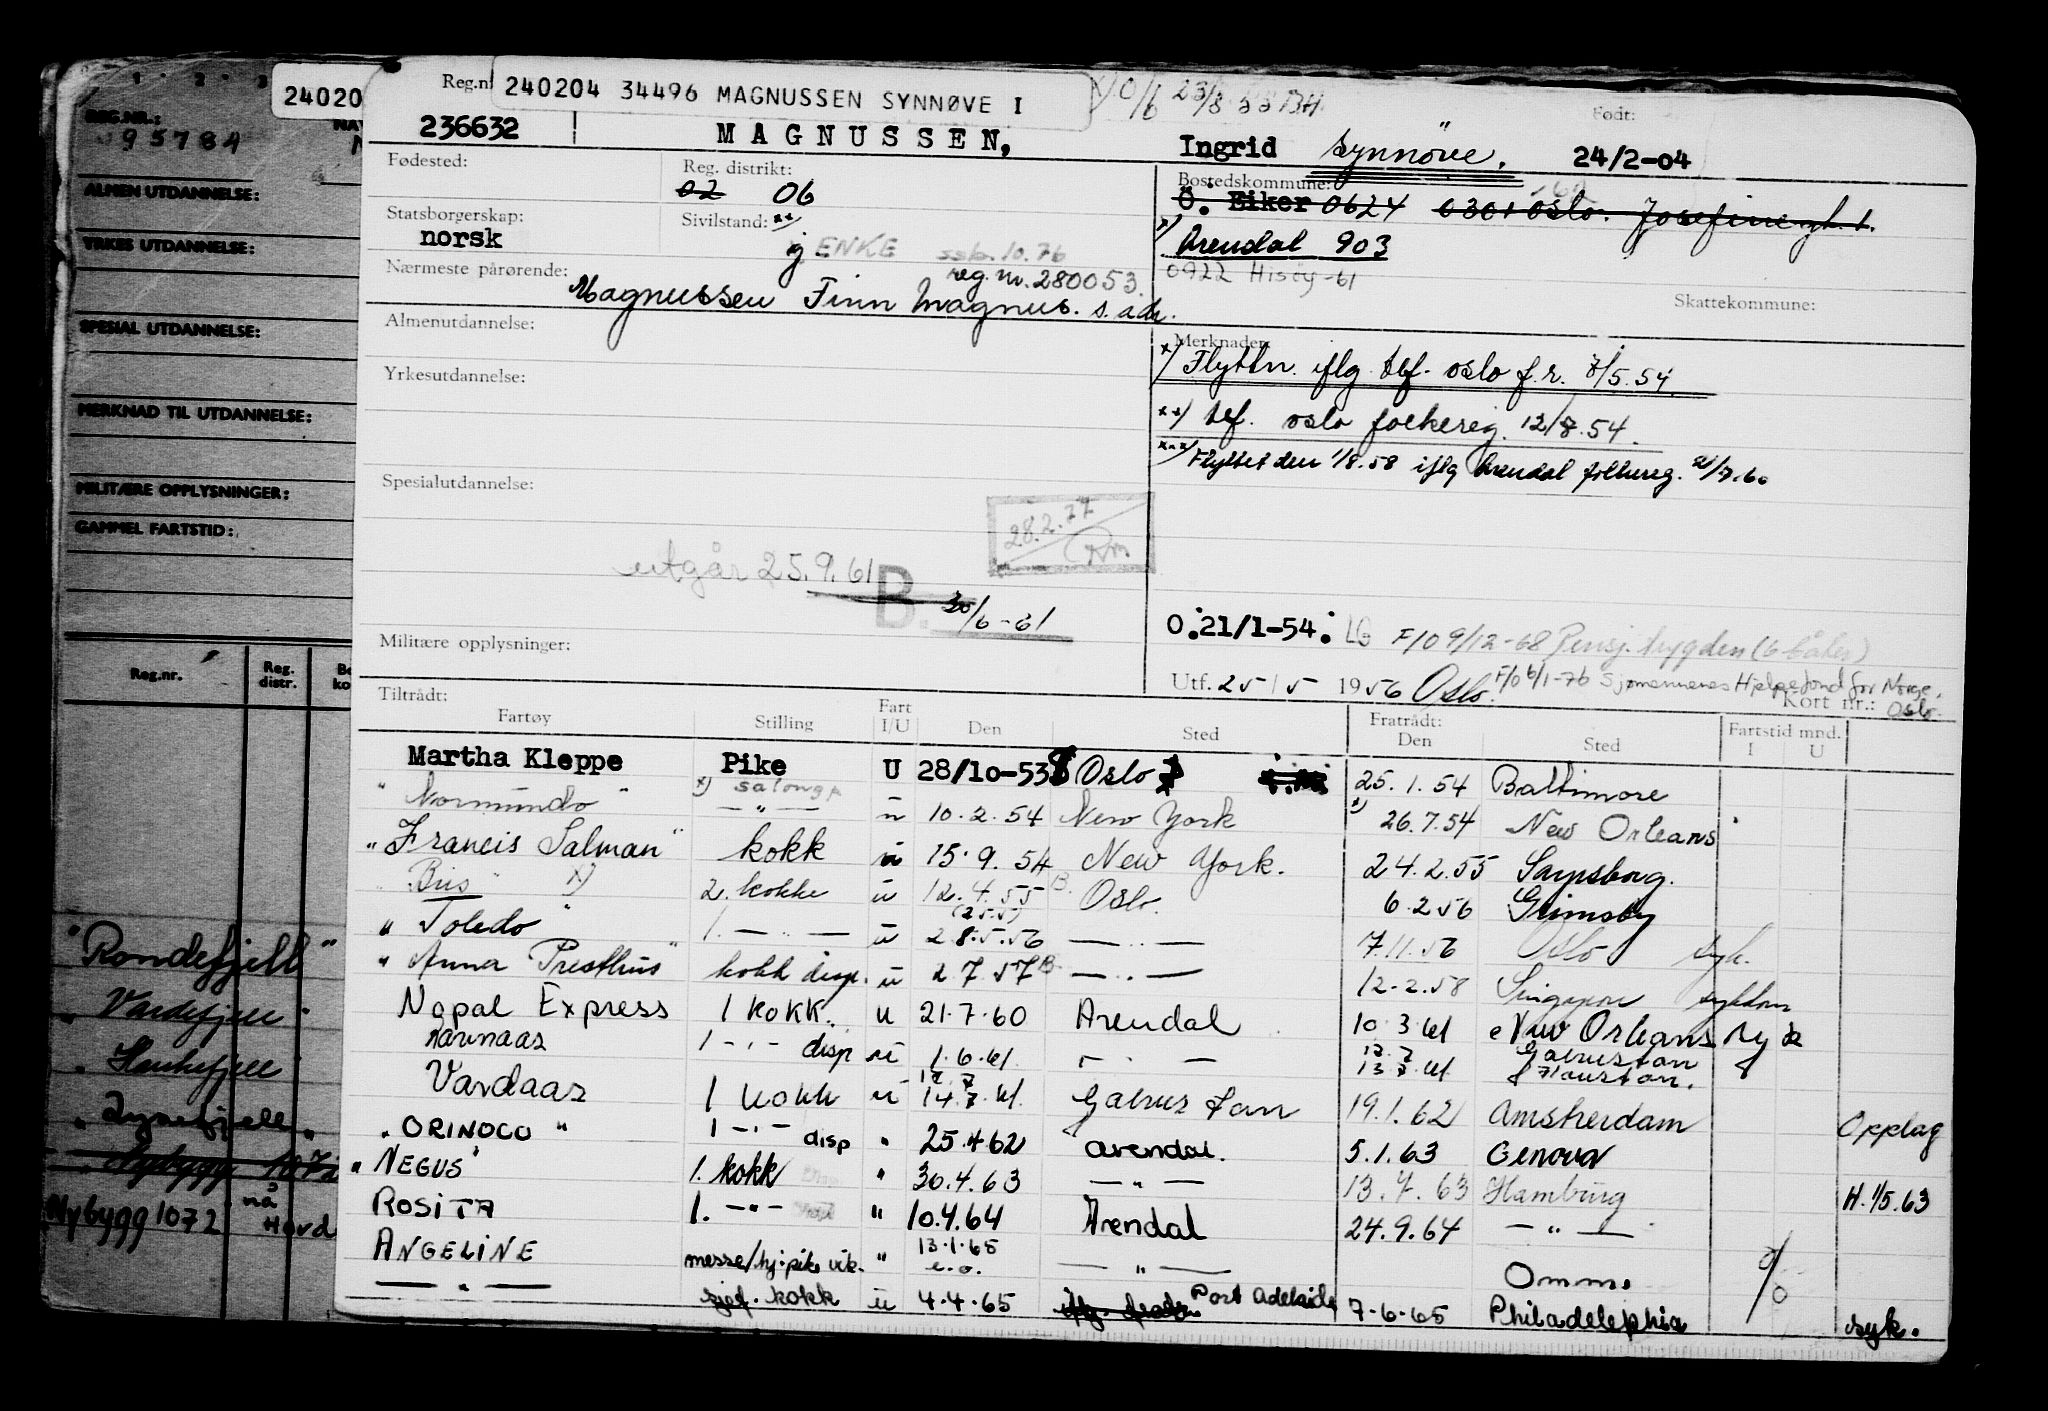 1 · 2 · 3
24020
REG.NR.:
95784
ALMEN UTDANNELSE:
YRKES UTDANNELSE:
SPESIAL UTDANNELSE:
MERKNAD TIL UTDANNELSE:
MILITÆRE OPPLYSNINGER:
GAMMEL FARTSTID:
Reg.nr.
Reg. distr.
"Rondefjell"
" Vardefjell "
" Haukefjell
Nybygg 1072 nå
Reg.n 240204 34496 MAGNUSSEN SYNNØVE I
236632 MAGNUSSEN, Ingrid Synnöve. Født: 24/2-04
Fødested:
Reg. distrikt: 02 06
Bostedskommune: Ö. Eiker 0624 0301 Oslo. Josefinegt.
Statsborgerskap: norsk
Sivilstand: xx) g ENKE ssb. 10.76
x) Arendal 903
0922 Hisøy-61
Nærmeste pårørende: Magnussen Finn Magnus. s. adr. reg. nr. 280053.
Skattekommune:
Almenutdannelse:
Merknader:
x) Flyttn. iflg. tlf. oslo f.r. 7/5.54.
Yrkesutdannelse:
xx) tlf. oslo folkereg. 12/8.54.
xxx) Flyttet den 1/8.58 iflg Arendal folkereg. 21/7.60
Spesialutdannelse:
28.2.77
utgår 25.9.61 B. 30/6-61
O.21/1-54. LG F/O 9/12-68 Pensj. trygden (6 bøker)
Militære opplysninger:
Utf. 25/5 1956 Oslo. F/O 6/1-76 Sjømennenes Hjelpefond for Norge, Oslo.
Kort nr.:
Tiltrådt:
Fartøy Stilling Fart I/U Den Sted Fratrådt: Den Sted Fartstid mnd. I U
Martha Kleppe Pike U 28/10-53 Oslo 25.1.54 Baltimore
" Normundo " x) salongp — " — u 10.2.54 New York x) 26.7.54 New Orleans
"Francis Salman" kokk u 15.9.54 New York. 24.2.55 Sarpsborg.
" Bris " x) 2. kokke u 12.4.55 B. Oslo. 6.2.56 Grimsby
" Toledo " 1. — " — u (25.5) 28.5.56 — " — 7.11.56 Oslo syk.
" Anna Presthus" kokk disp. u 2.7.57 B. — " — 12.2.58 Singapore sykdom
Nopal Express 1 kokk. u 21.7.60 Arendal 10.3.61 New Orleans syk
Farmaas 1 - " - disp u 1.6.61 — " — 12.7 13.7.61 Galveston Houston.
Vardaas 1 kokk u 12.7 14.7.61 19.1.62 Amsterdam Opplag
"ORINOCO" 1 - " - disp " 25.4.62 Arendal. 5.1.63 Genova
"NEGUS" 1. kokk " 30.4.63 — " — 13.7.63 Hamburg H. 1/5.63
ROSITA 1. - " - " 10.4.64 Arendal 24.9.64 — " —
ANGELINE messe/hj: pike vik. " 13.1.65 e.o. — " — Omme.
— " — sjef. kokk u 4.4.65 Port Adelaide 7.6.65 Philadelephia syk.